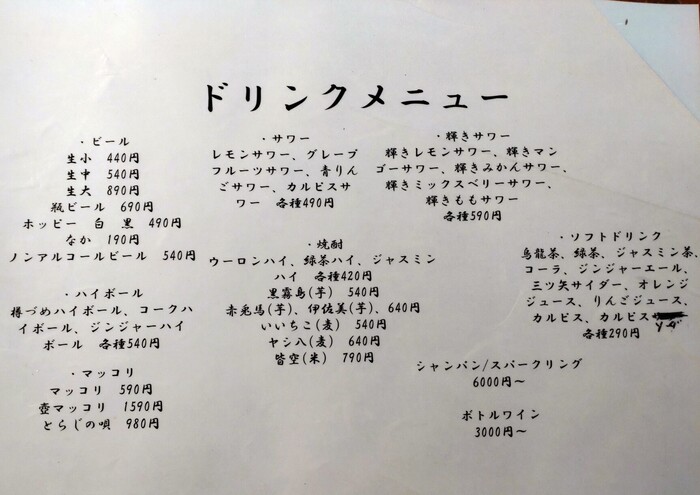 ドリンクメニュー
・ビール
生小 440円
生中 540円
生大 890円
瓶ビール 690円
ホッピー 白 黒 490円
なか 190円
ノンアルコールビール 540円
・ハイボール
樽づめハイボール、コークハ
イボール、ジンジャーハイ
ボール 各種540円
・マッコリ
マッコリ 590円
壺マッコリ 1590円
とらじの唄 980円
・サワー
レモンサワー、グレープ
フルーツサワー、青りん
ごサワー、カルピスサ
ワー 各種490円
・焼酎
ウーロンハイ、緑茶ハイ、ジャスミン
ハイ 各種420円
黒霧島(芋) 540円
赤兎馬(芋)、伊佐美(芋)、640円
いいちこ(麦) 540円
ヤシ八(麦) 640円
皆空(米) 790円
・輝きサワー
輝きレモンサワー、輝きマン
ゴーサワー、輝きみかんサワー、
輝きミックスベリーサワー、
輝きももサワー
各種590円
・ソフトドリンク
烏龍茶、緑茶、ジャスミン茶、
コーラ、ジンジャーエール、
三ツ矢サイダー、オレンジ
ジュース、りんごジュース、
カルピス、カルピス
ソーダ
各種290円
シャンパン/スパークリング
6000円～
ボトルワイン
3000円～